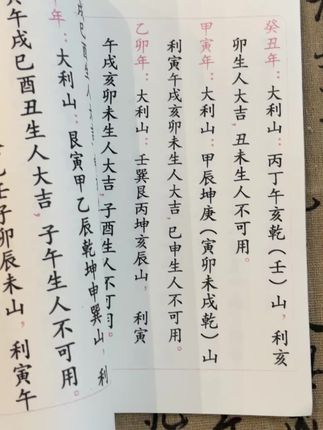 癸丑年：大利山：丙丁午亥乾（壬）山，利亥
卯生人大吉，丑未生人不可用。
甲寅年：大利山：甲辰坤庚（寅卯未戌乾）山
利寅午戌亥卯未生人大吉，巳申生人不可用。
乙卯年：大利山：壬巽艮丙坤亥辰山，利寅
午戌亥卯未生人大吉，子酉生人不可用。
年：大利山：艮寅甲乙辰乾坤申巽山，利
戌巳酉丑生人大吉，子午生人不可用。
壬子卯辰未山，利寅午